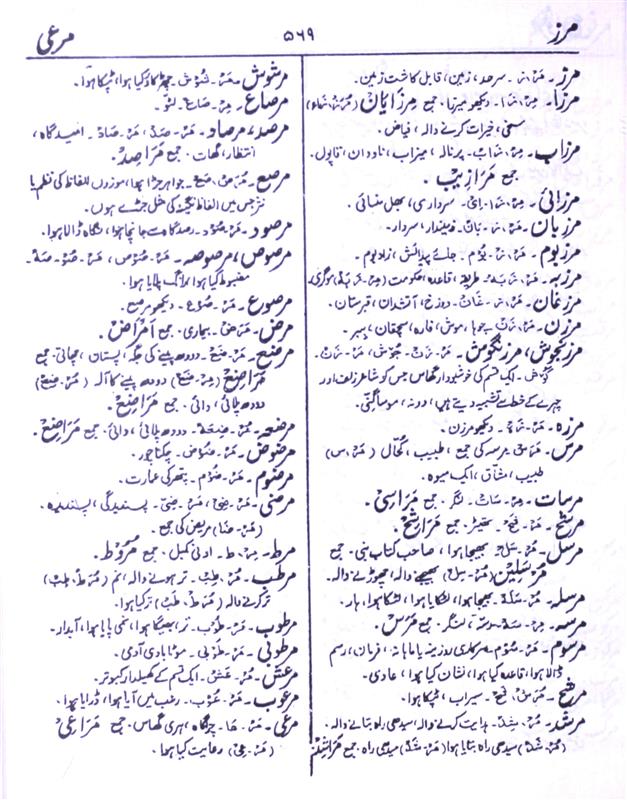 مرز ۵۶۹ مرعی
مرز۔ مَرْ۔ز۔ سرحد، زمین، قابل کاشت زمین۔
مرزا۔ مِرْ۔زَا۔ دیکھو میرزا۔ جمع مِرْزَایَان
سخی، خیرات کرنے والہ، فیاض۔
مرزاب۔ مِرْ۔زَابْ۔ پرنالہ، میزاب، ناودان، نالی۔
جمع مَرَازِیْب۔
مرزائی۔ مِرْ۔زَا۔ئِیْ۔ سرداری، بھل منسائی۔
مرزبان۔ مَرْ۔زْ۔بَانْ۔ زمیندار، سردار۔
مرزبوم۔ مَرْ۔زْ۔بُوْم۔ جائے پیدائش، زادبوم۔
مرزبہ۔ طریقہ، قاعدہ، حکومت موگری۔
مرزغان۔ مَرْ۔زْ۔غَانْ۔ دوزخ، آتشدان، قبرستان۔
مرزن۔ مَرْ۔زَنْ۔ چوہا، موش، فارہ، سچقان،
مرزنجوش، مرزنگوش۔ مَرْ۔زَنْ۔جُوْش، مَرْ۔زَنْ۔
گُوْش۔ ایک قسم کی خوشبودار گھاس جس کو شاعر زلف اور
چہرے کے خط سے تشبیہ دیتے ہیں، دونہ،
مرزہ۔ مَرْ۔زَہْ۔ دیکھو مرزن۔
مرس۔ مَرَسْ۔ مرسہ کی جمع، طبیب، کحّال (مَرْ۔س)
طبیب، مشّاق، ایک میوہ۔
مرسات۔ مِرْ۔سَاتْ۔ لنگر۔ جمع مَرَاسِی۔
مرشح۔ جمع مَرَاشِح۔
مرسل۔ مُرْ۔سَلْ۔ بھیجا ہوا، صاحب کتاب نبی۔ جمع
مُرْسَلِیْن (مُرْ۔سِلْ) بھیجنے والہ، چھوڑنے والہ۔
مرسلہ۔ مُرْ۔سَلَہْ۔ بھیجا ہوا، لٹکایا ہوا، لٹکا ہوا، ہار۔
مرسہ۔ مَرْ۔سَہْ۔ رسّہ، لنگر۔ جمع مَرَس۔
مرسوم۔ مَرْ۔سُوْم۔ سرکاری روزینہ یا ماہانہ، فرمان، رسم
ڈالا ہوا، قاعدہ کیا ہوا، نشان کیا ہوا، عادی۔
مرشح۔ سیراب، ٹپکا ہوا۔
مرشد۔ مُرْ۔شِدْ۔ ہدایت کرنے والہ، سیدھی راہ بتانے والہ۔
(مُرْ۔شَدْ) سیدھی راہ بتایا ہوا (مَرْ۔شَدْ) سیدھی راہ۔ جمع مَرَاشِد
مرشوش۔ مَرْ۔شُوْش۔ چھڑکاؤ کیا ہوا، ٹپکا ہوا۔
مرصاع۔ مِرْ۔صَاع۔ لٹو۔
مرصد، مرصاد۔ مَرْ۔صَدْ، مِرْ۔صَادْ۔ امید گاہ،
انتظار، گھات۔ جمع مَرَاصِد۔
مرصع۔ مُرَصْ۔صَعْ۔ جواہر جڑا ہوا، موزوں الفاظ کی نظم یا
نثر جس میں الفاظ نگینہ کی مثل جڑے ہوں۔
مرصود۔ مَرْ۔صُوْد۔ رصدگاہ سے جانچا ہوا، نگاہ ڈالا ہوا۔
مرصوص، مرصوصہ۔ مَرْ۔صُوْص، مَرْ۔صُوْ۔صَہْ۔
مضبوط کیا ہوا، رانگ پلایا ہوا۔
مرصوع۔ مَرْ۔صُوْع۔ دیکھو مرصع۔
مرض۔ مَرَضْ۔ بیماری۔ جمع اَمْرَاض۔
مرضع۔ مَرْ۔ضَعْ۔ دودھ پینے کی جگہ، پستان، چھاتی۔ جمع
مَرَاضِع (مِرْ۔ضَعْ) دودھ پینے کا آلہ (مُرْ۔ضِعْ)
دودھ پلائی، دائی۔ جمع مَرَاضِع۔
مرضعہ۔ مُرْ۔ضِعَہْ۔ دودھ پلائی، دائی۔ جمع مَرَاضِع۔
مرضوض۔ مَرْ۔ضُوْض۔ چکنا چور۔
مرضوم۔ مَرْ۔ضُوْم۔ پتھر کی عمارت۔
مرضی۔ مَرْ۔ضِیْ، مَرْ۔ضِیّ۔ پسندیدگی، پسندیدہ۔
(مَرْ۔ضَا) مریض کی جمع۔
مرط۔ مِرْ۔ط۔ اونی کمبل۔ جمع مُرُوْط۔
مرطب۔ مُرْ۔طِبْ۔ تر ہونے والہ، نم (مُرَطْ۔طِبْ)
تر کرنے والہ (مُرَطْ۔طَبْ) تر کیا ہوا۔
مرطوب۔ مَرْ۔طُوْب۔ تر، بھیگا ہوا، نمی پایا ہوا، آبدار۔
مرطوبی۔ مَرْ۔طُوْبِی۔ سوداوی آدمی۔
مرعش۔ مَرْ۔عَشْ۔ ایک قسم کے کھیلدار کبوتر۔
مرعوب۔ مَرْ۔عُوْب۔ رعب میں آیا ہوا، ڈرایا ہوا۔
مرعی۔ مَرْ۔عَا۔ چراگاہ، ہری گھاس۔ جمع مَرَاعِی
(مَرْ۔عِیْ) رعایت کیا ہوا۔